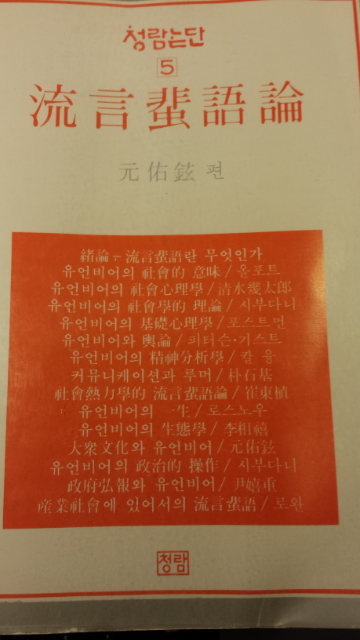 청람논단
5
流言蜚語論
元佑鉉 편
緖論-流言蜚語란 무엇인가
유언비어의 社會的 意味/올포트
유언비어의 社會心理學/清水幾太郎
유언비어의 社會學的 理論/시부다니
유언비어의 基礎心理學/포스트먼
유언비어와 輿論/피터슨·기스트
유언비어의 精神分析學/칼 융
커뮤니케이션과 루머/朴石基
社會熱力學的 流言蜚語論/崔東植
유언비어의 一生/로스노우
유언비어의 生態學/李相禧
大衆文化와 유언비어/元佑鉉
유언비어의 政治的 操作/시부다니
政府弘報와 유언비어/尹嬉重
産業社會에 있어서의 流言蜚語/로윈
청람